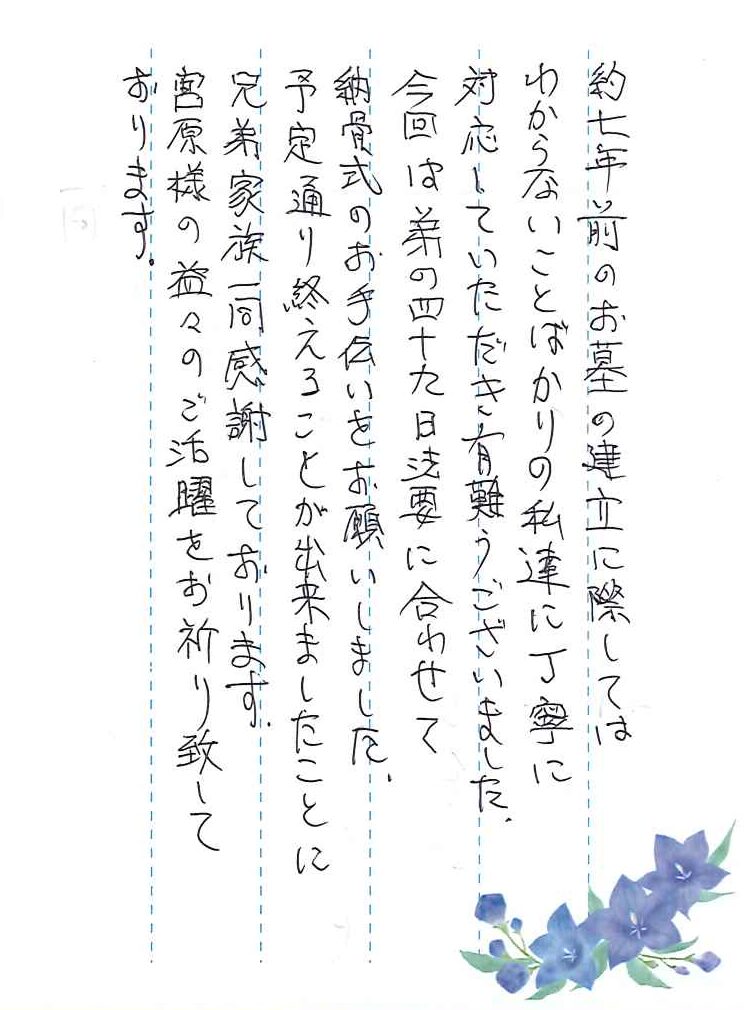 約七年前のお墓の建立に際しては
わからないことばかりの私達に丁寧に
対応していただき有難うございました。
今回は弟の四十九日法要に合わせて
納骨式のお手伝いをお願いしました。
予定通り終えることが出来ましたことに
兄弟家族一同感謝しております。
宮原様の益々のご活躍をお祈り致して
おります。